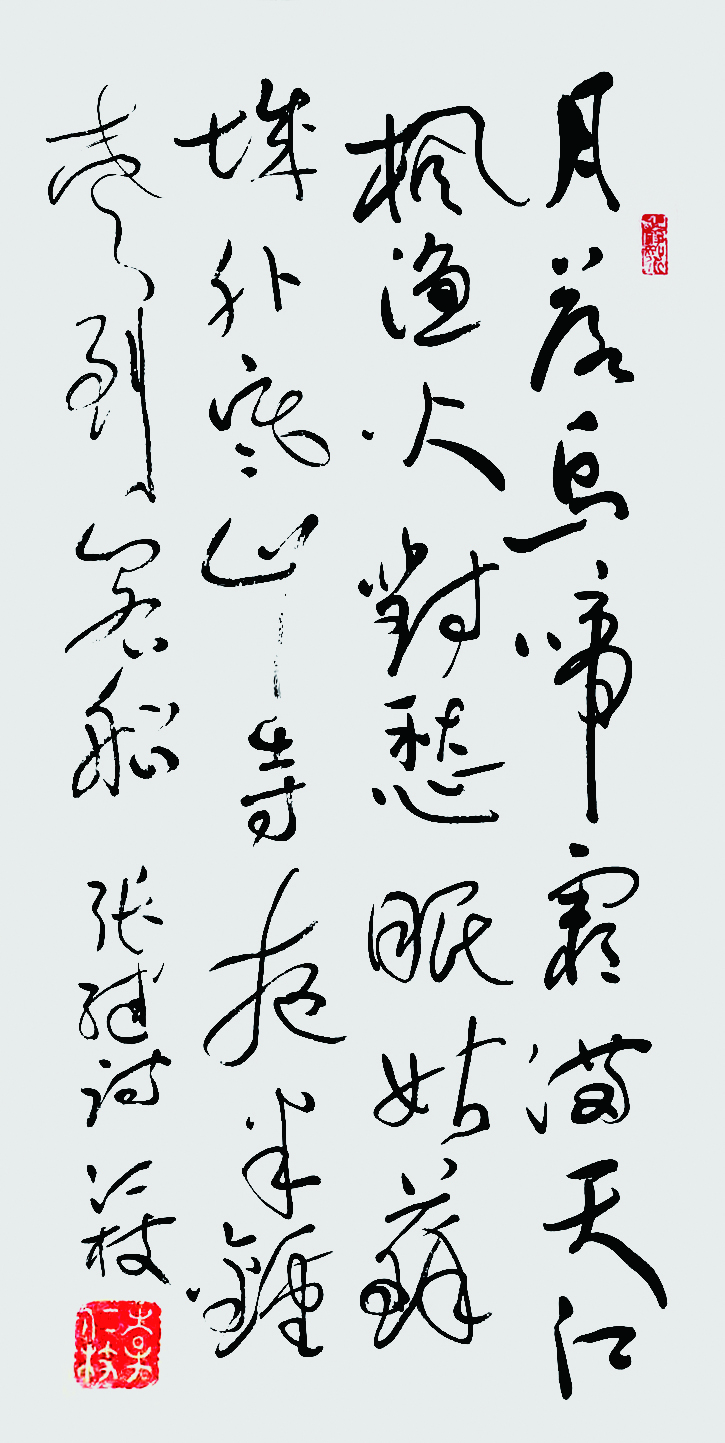 月落烏啼霜滿天江
楓漁火對愁眠姑蘇
城外寒山寺夜半鍾
聲到客船 張繼詩 仁枝
仁枝